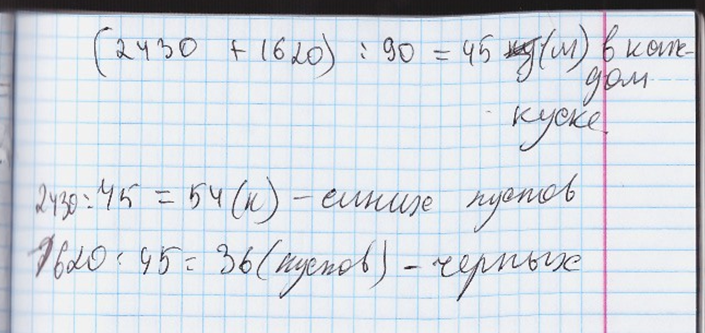 (2430 + 1620) : 90 = 45 (м) в каж-
дом
куске.
2430 : 45 = 54 (к) – синих кусков
1620 : 45 = 36 (кусков) – черных